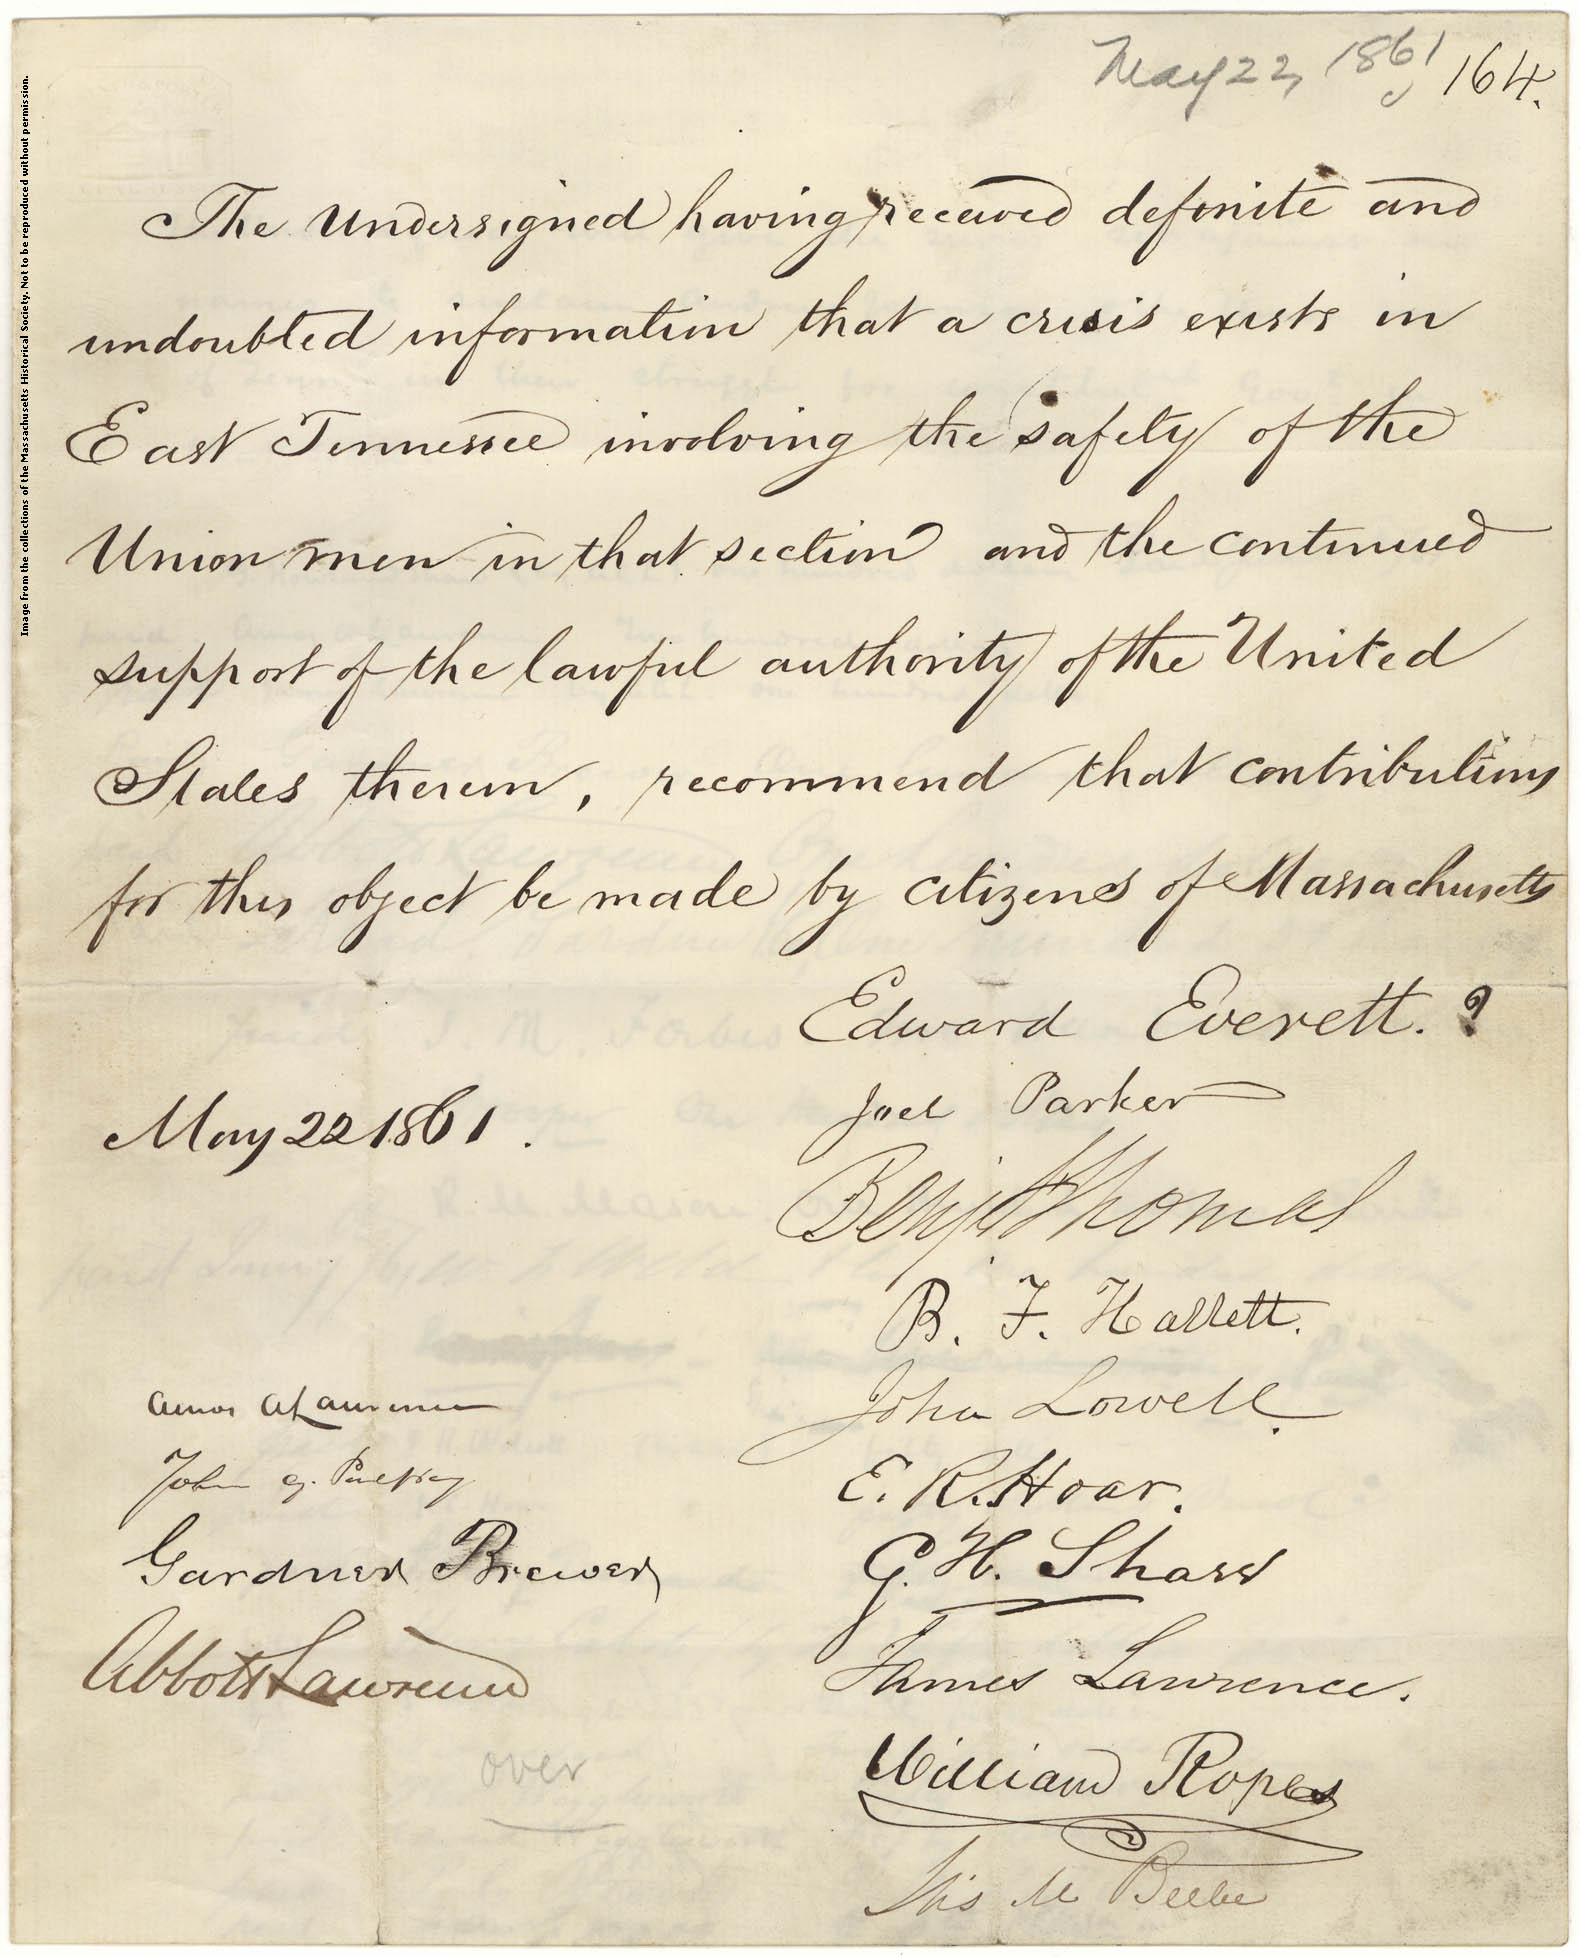 May 22, 1861
164.
Image from the collections of the Massachusetts Historical Society. Not to be reproduced without permission.
The Undersigned having received definite and
undoubted information that a crisis exists in
East Tennessee involving the safety of the
Union men in that section and the continued
support of the lawful authority of the United
States therein, recommend that contributions
for this object be made by citizens of Massachusetts
Edward Everett. ?
Joel Parker
May 22 1861.
Benj F Thomas
B. F. Hallett.
John Lowell.
Amos A Lawrence
John G. Palfrey
E. R. Hoar.
Gardner Brewer
G. H. Shaw
Abbott Lawrence
James Lawrence.
over
William Ropes
M Beebe